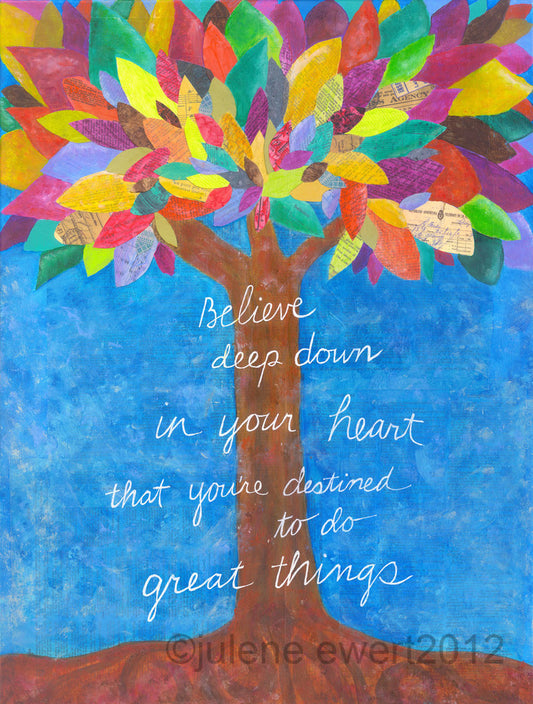 A AGENCY
Believe
deep down
in your heart
that you're destined
to do
great things
©julene ewert2012